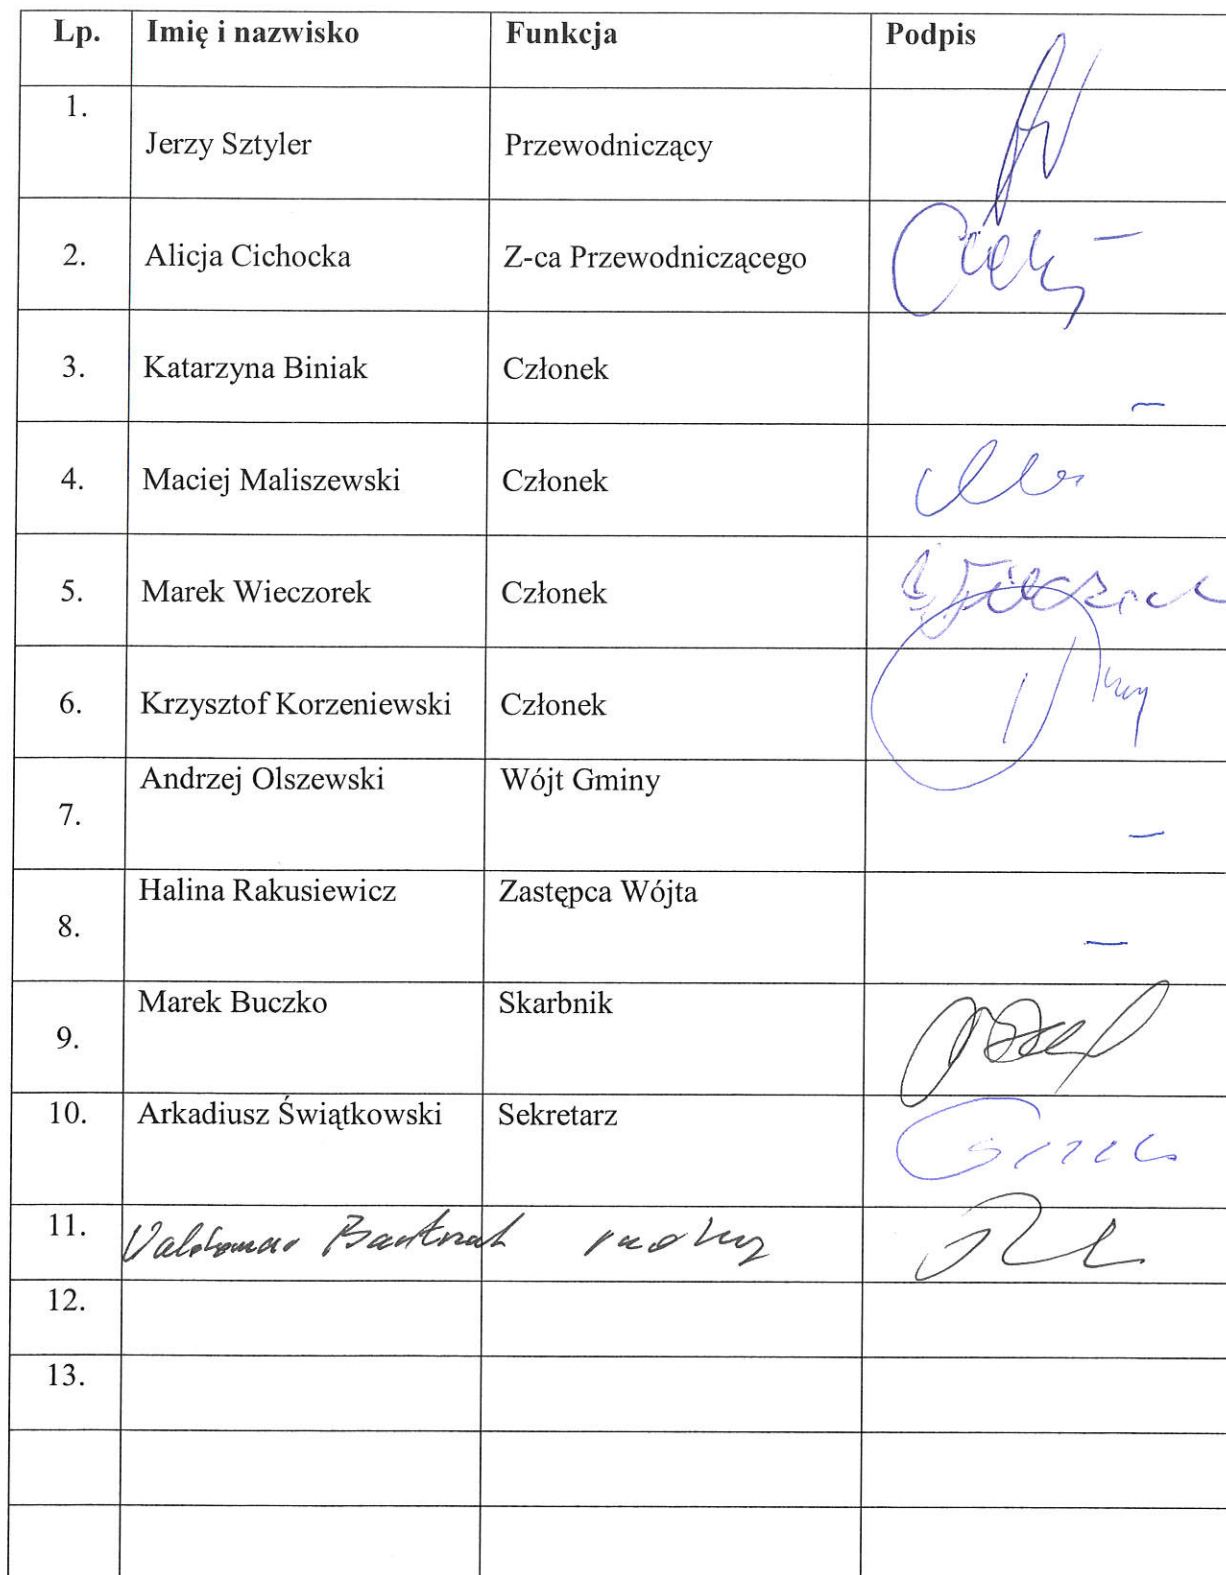 Lp. Imię i nazwisko Funkcja Podpis
1. Jerzy Sztyler Przewodniczący
2. Alicja Cichocka Z-ca Przewodniczącego
3. Katarzyna Biniak Członek –
4. Maciej Maliszewski Członek
5. Marek Wieczorek Członek
6. Krzysztof Korzeniewski Członek
7. Andrzej Olszewski Wójt Gminy –
8. Halina Rakusiewicz Zastępca Wójta –
9. Marek Buczko Skarbnik
10. Arkadiusz Świątkowski Sekretarz
11. radny
12.
13.